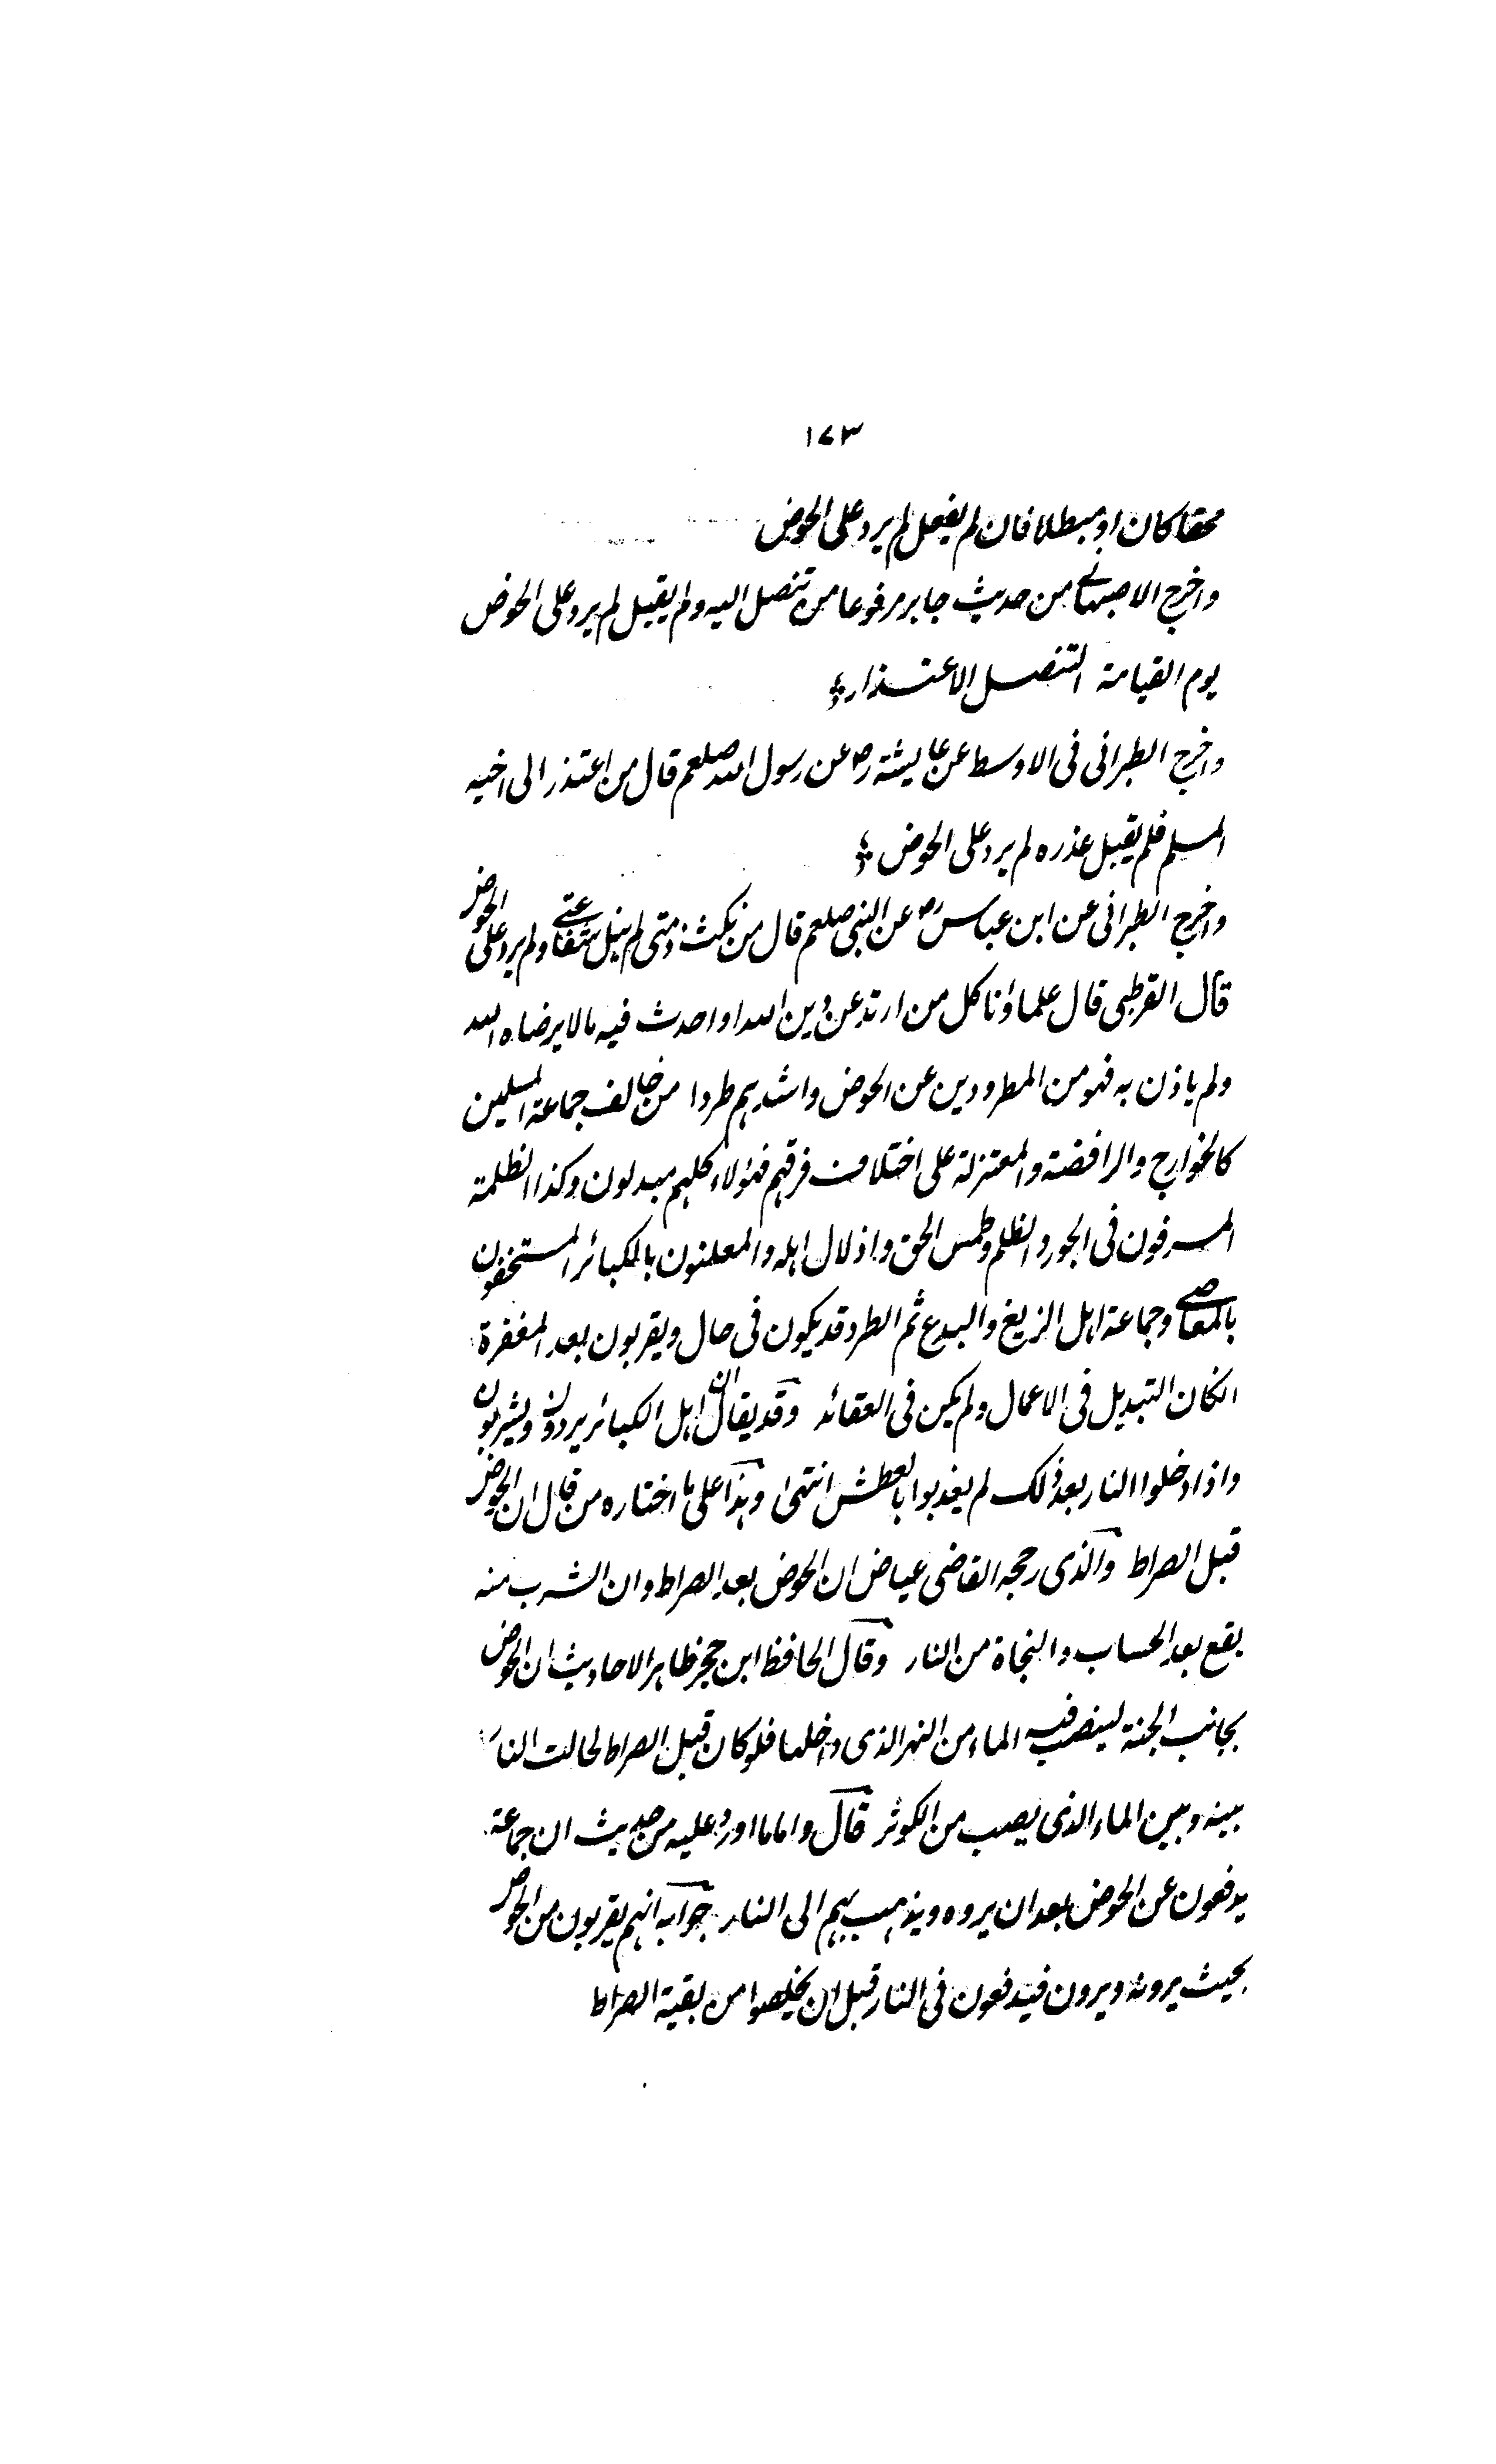 ١٧٣
محقا كان او مبطلا فان لم يفعل لم يرد على الحوض
واخرج الاصبهانى من حديث جابر مرفوعا من تنصل اليه ولم يقبل لم يرد على الحوض
يوم القيامة التنصل الاعتذار
واخرج الطبرانى فى الاوسط عن عايشة رض عن رسول الله صلعم قال من اعتذر الى اخيه
المسلم فلم يقبل عذره لم يرد على الحوض
واخرج الطبرانى عن ابن عباس رض عن النبى صلعم قال من نكث ذمتى لم ينل شفاعتى ولم يرد على الحوض
قال القرطبى قال علماؤنا كل من ارتد عن دين الله او احدث فيه ما لا يرضاه الله
ولم ياذن به فهو من المطرودين عن الحوض واشدهم طردا من خالف جماعة المسلمين
كالخوارج والرافضة والمعتزلة على اختلاف فرقهم فهؤلاء كلهم مبدلون وكذا الظلمة
المسرفون فى الجور والظلم وطمس الحق واذلال اهله والمعلنون بالكبائر المستخفون
بالمعاصى وجماعة اهل الزيغ والبدع ثم الطرد قد يكون فى حال ويقربون بعد المغفرة
انكان التبديل فى الاعمال ولم يكن فى العقائد وقد يقال ان اهل الكبائر يردون ويشربون
واذا دخلوا النار بعد ذلك لم يعذبوا بالعطش انتهى وهذا على ما اختاره من قال ان الحوض
قبل الصراط والذى رجحه القاضى عياض ان الحوض بعد الصراط وان الشرب منه
يقع بعد الحساب والنجاة من النار وقال الحافظ ابن حجر ظاهر الاحاديث ان الحوض
بجانب الجنة لينصب فيه الماء من النهر الذى داخلها فلو كان قبل الصراط لحالت النار
بينه وبين الماء الذى يصب من الكوثر قال واما ما اورد عليه من حديث ان جماعة
يدفعون عن الحوض بعد ان يروه ويذهب بهم الى النار جوابه انهم يقربون من الحوض
بحيث يرونه ويرون فيدفعون فى النار قبل ان يخلصوا من بقية الصراط